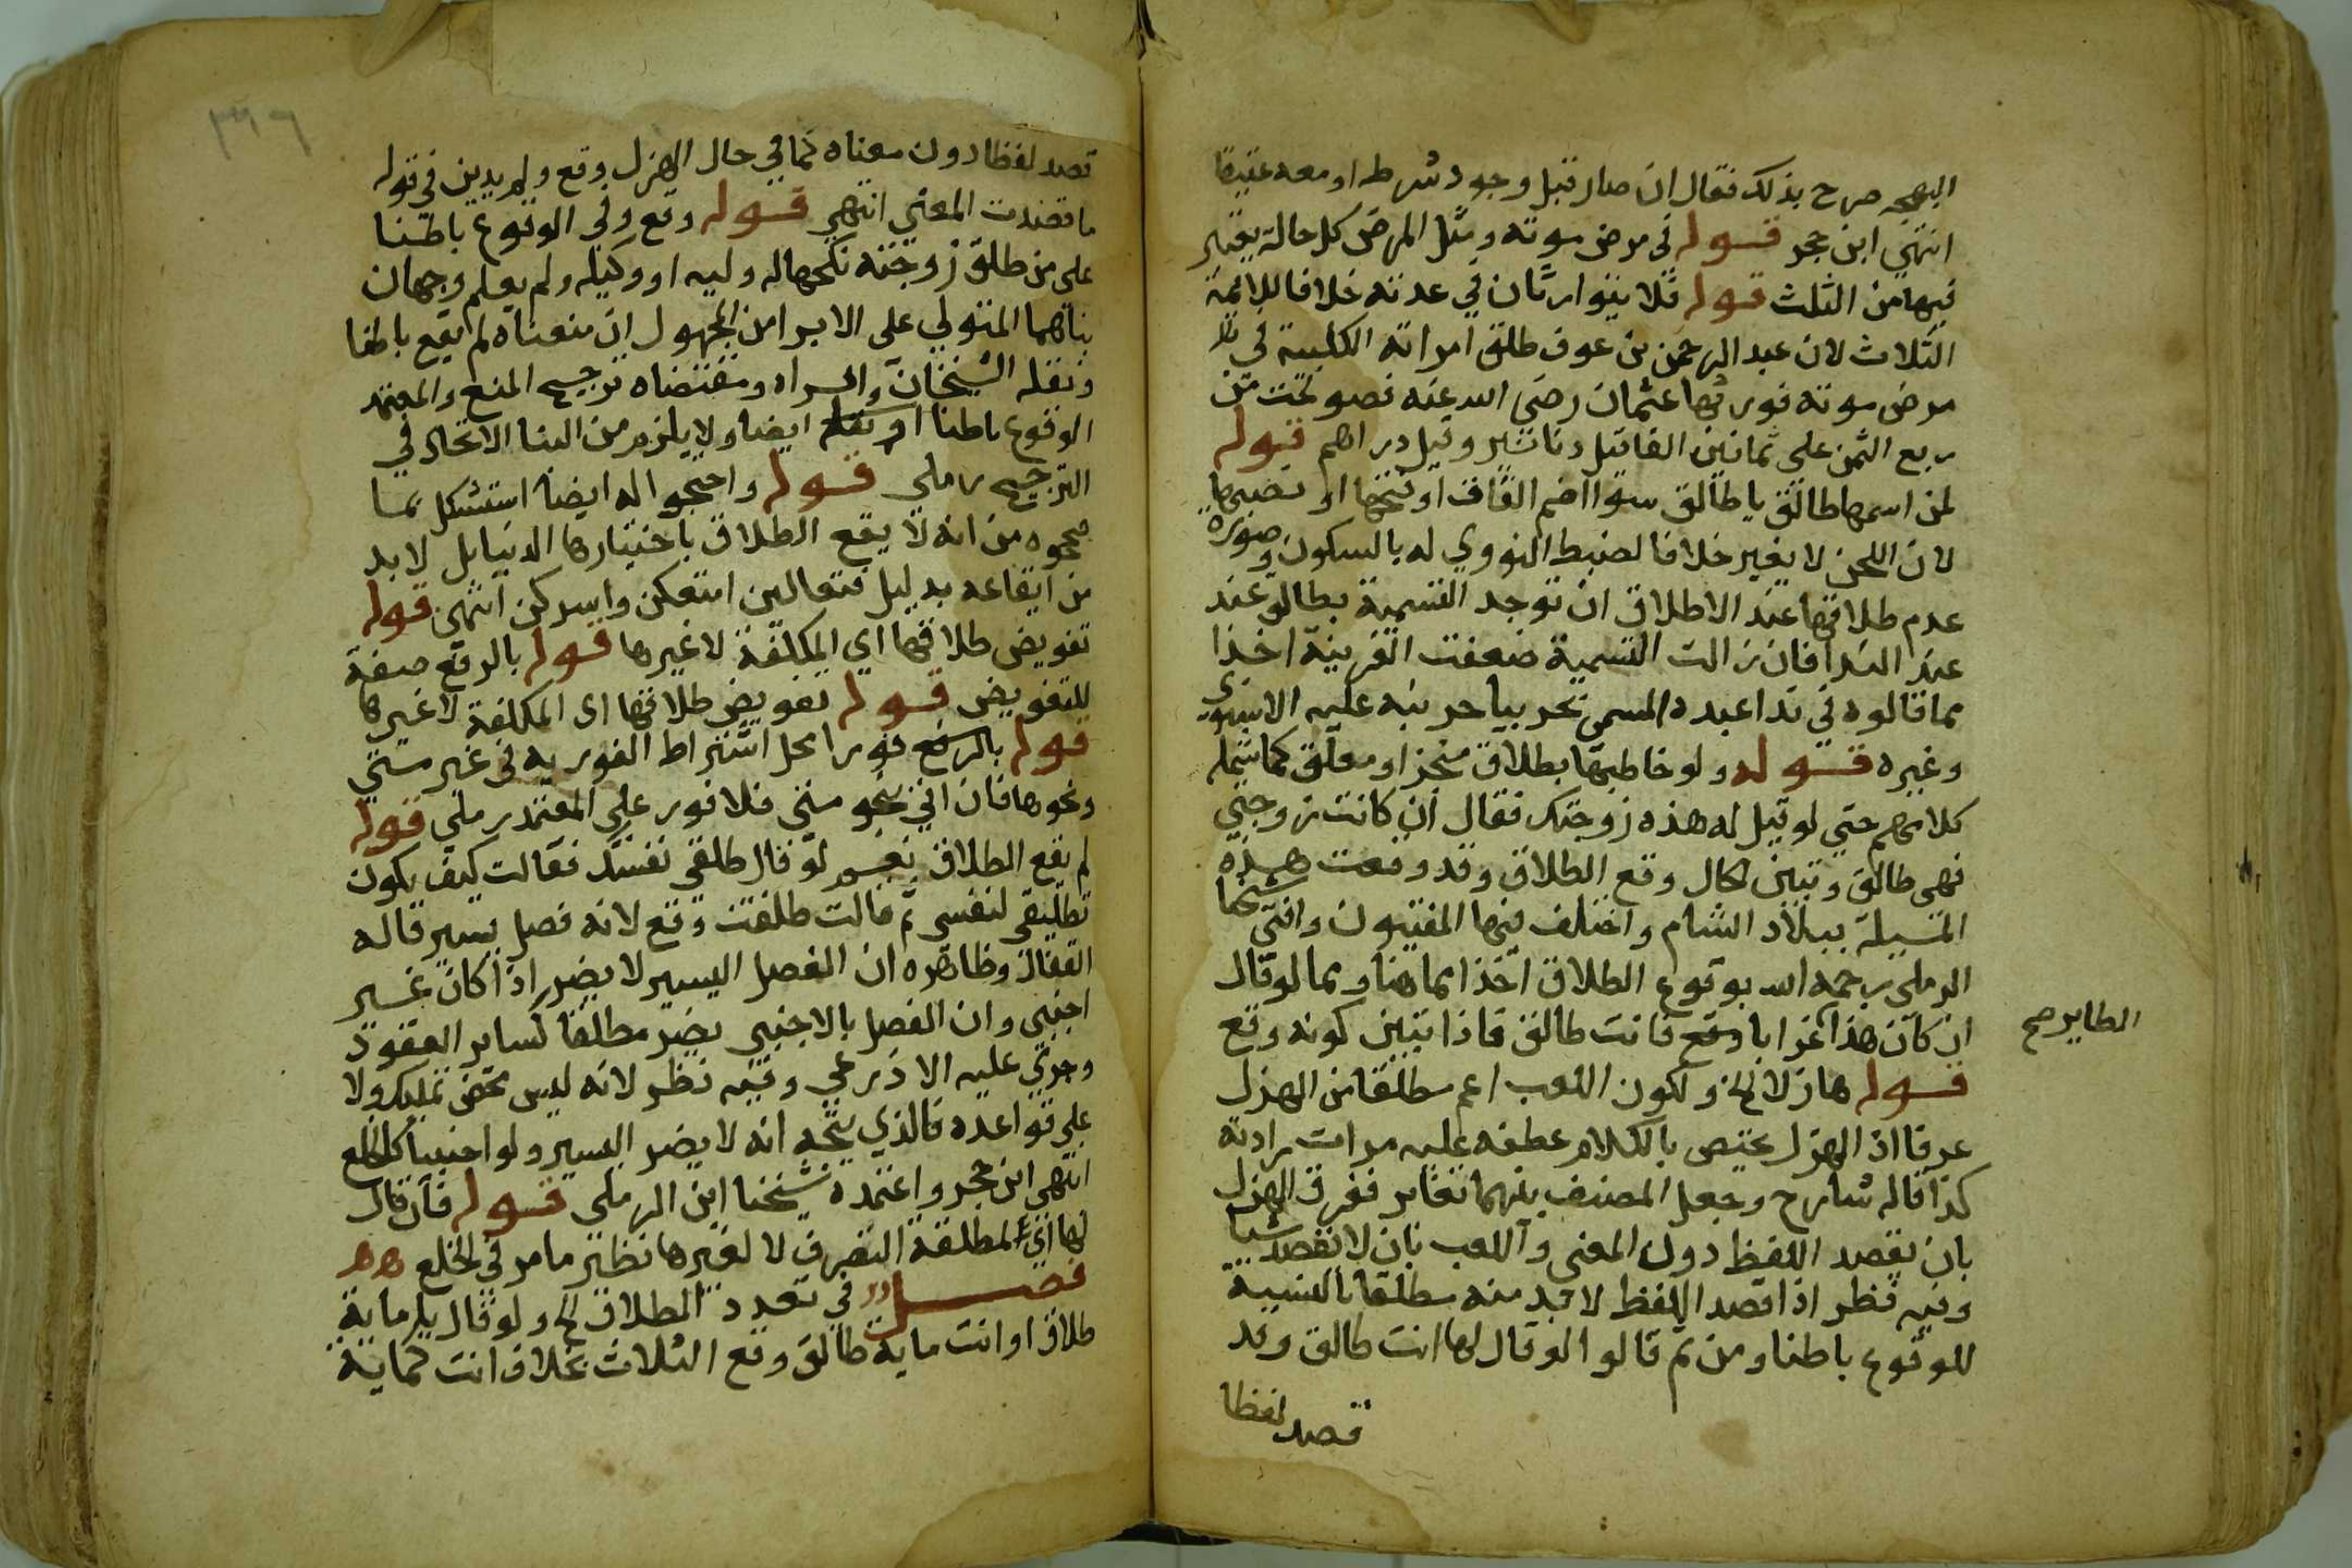 البهجه صرح بذلك فقال ان صار قبل وجود شرطه او معه عتيقا
انتهي ابن حجر قوله في مرض موته ومثل المرض كل حالة يعتبر
فيها من الثلث قوله فلا يتوارثان في عدته خلافا للائمة
الثلاث لان عبد الرحمن بن عوف طلق امراته الكلبية في
مرض موته فورثها عثمان رضي الله عنه فصولحت من
ربع الثمن على ثمانين الفا قيل دنانير وقيل دراهم قوله
لمن اسمها طالق يا طالق سوا اضم القاف او فتحها او نصبها
لان اللحن لا يغير خلافا لضبط النووي له بالسكون وصورة
عدم طلاقها عند الاطلاق ان توجد التسمية بطالق عند
عند الندا فان زالت التسمية ضعفت القرينة اخذا
مما قالوه في ندا عبده المسمى بحر بيا حر نبه عليه الاسنوي
وغيره قوله ولو خاطبها بطلاق منجز او معلق كما شمله
كلامهم حتي لو قيل له هذه زوجتك فقال ان كانت زوجتي
فهي طالق وتبين الحال وقع الطلاق وقد وقعت هذه
المسيلة ببلاد الشام واختلف فيها المفتيون وافتي شيخنا
الرملي رحمه الله بوقوع الطلاق اخذا مما هنا ومما لو قال
ان كان هذا غرابا وقع فانت طالق فاذا تبين كونه وقع
الطاير صح
قوله هازلا الخ ولكون اللعب اعم مطلقا من الهزل
عرفا اذ الهزل يختص بالكلام عطفه عليه مرات برادته
كذا قاله شارح وجعل المصنف بينهما تغاير ففرق الهزل
بان يقصد اللفظ دون المعنى واللعب بان لا يقصد شيا
وفيه نظر اذ اقصد اللفظ لا بد منه مطلقا بالنسبة
للوقوع باطنا ومن ثم قالوا لو قال لها انت طالق وقد
قصد لفظا
٣٩٦
قصد لفظا دون معناه كما في حال الهزل وقع ولم يدين في قوله
ما قصدت المعني انتهي قوله وقع وفي الوقوع باطنا
على من طلق زوجته نكحها له وليه او وكيله ولم يعلم وجهان
بناهما المتولي على الابرا من المجهول ان منعناه لم يقع باطنا
ونقله الشيخان واقراه ومقتضاه ترجيح المنع والمعتمد
الوقوع باطنا ايضا ولا يلزم من البنا الاتحاد في
الترجيح رملي قوله واحتجوا له ايضا استشكل بما
صححوه من انه لا يقع الطلاق باختيارها الدنيا بل لا بد
من ايقاعه بدليل فتعالين امتعكن واسرحكن انتهى قوله
تفويض طلاقها اي المكلفة لا غيرها قوله بالرفع صفة
للتفويض قوله تفويض طلاقها اى المكلفة لا غيرها
قوله بالرفع فورا محل اشتراط الفورية في غير متي
ونحوها فان اتي بنحو متي فلا فور علي المعتمد رملي قوله
لم يقع الطلاق نعم لو قال طلقي نفسك فقالت كيف يكون
تطليقي لنفسي ثم قالت طلقت وقع لانه فصل يسير قاله
القفال وظاهره ان الفصل اليسير لا يضر اذا كان غير
اجنبي وان الفصل بالاجنبي يضر مطلقا كساير العقود
وجري عليه الاذرعي وفيه نظر لانه ليس محض تمليك ولا
علي قواعده فالذي يتجه انه لا يضر اليسير ولو اجنبيا كالخلع
انتهي ابن حجر واعتمده شيخنا ابن الرملي قوله فان قال
لها اي المطلقة التصرف لا لغيرها نظير ما مر في الخلع
فصل في تعدد الطلاق الخ ولو قال يا ماية
طلاق او انت ماية طالق وقع الثلاث بخلاف انت كماية